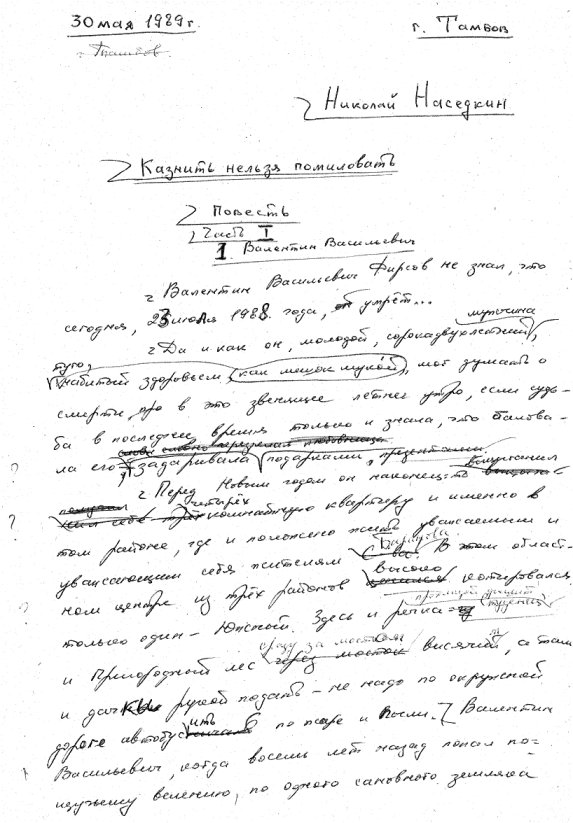 30 мая 1989 г.
г. Тамбов
г. Тамбов.
Николай Наседкин
Казнить нельзя помиловать
Повесть
Часть I
1. Валентин Васильевич
Валентин Васильевич Фирсов не знал, что
сегодня, 23 июля 1988 года, он умрёт...
мужчина
Да и как он, молодой, сорокадвухлетний,
туго,
набитый здоровьем (как мешок мукой), мог думать о
смерти, да в это звенящее летнее утро, если судь-
ба в последнее время только и знала, что балова-
ла его, задаривала подарками, презентами.
Перед Новым годом он наконец-то
четырёхкомнатную квартиру и именно в
том районе, где и положено жить уважаемым и
уважающим себя жителям Баранова. В этом област-
ном центре из трёх районов высоко котировался
только один – Южный. Здесь и речка
сразу за мостом
и Пригородный лес висячим, а там
и дачи рукой подать – не надо по окружной
дороге автобусить по жаре и пыли. Валентин
Васильевич, когда восемь лет назад попал по
щучьему велению, по одного сановного земляка